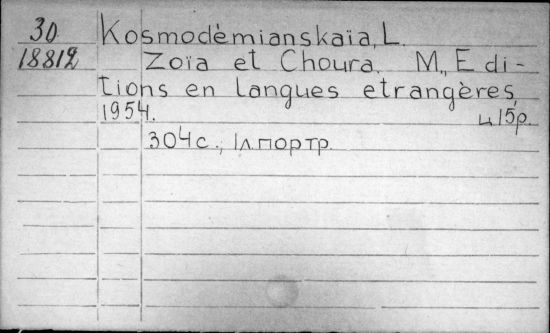 30 Kosmodèmianskaïa, L.
18812 Zoïa et Choura. M., Edi-
tions en langues etrangères,
1954. ц 15р.
304 с., 1 л. портр.